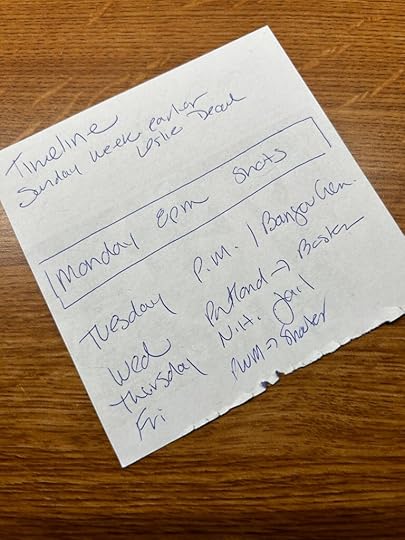 Timeline
Sunday week earlier
Leslie Dead
Monday 8pm Shots
Tuesday P.M. / Bangor Gen.
Wed Portland →
Thursday N.H. Jail
Fri PWM →